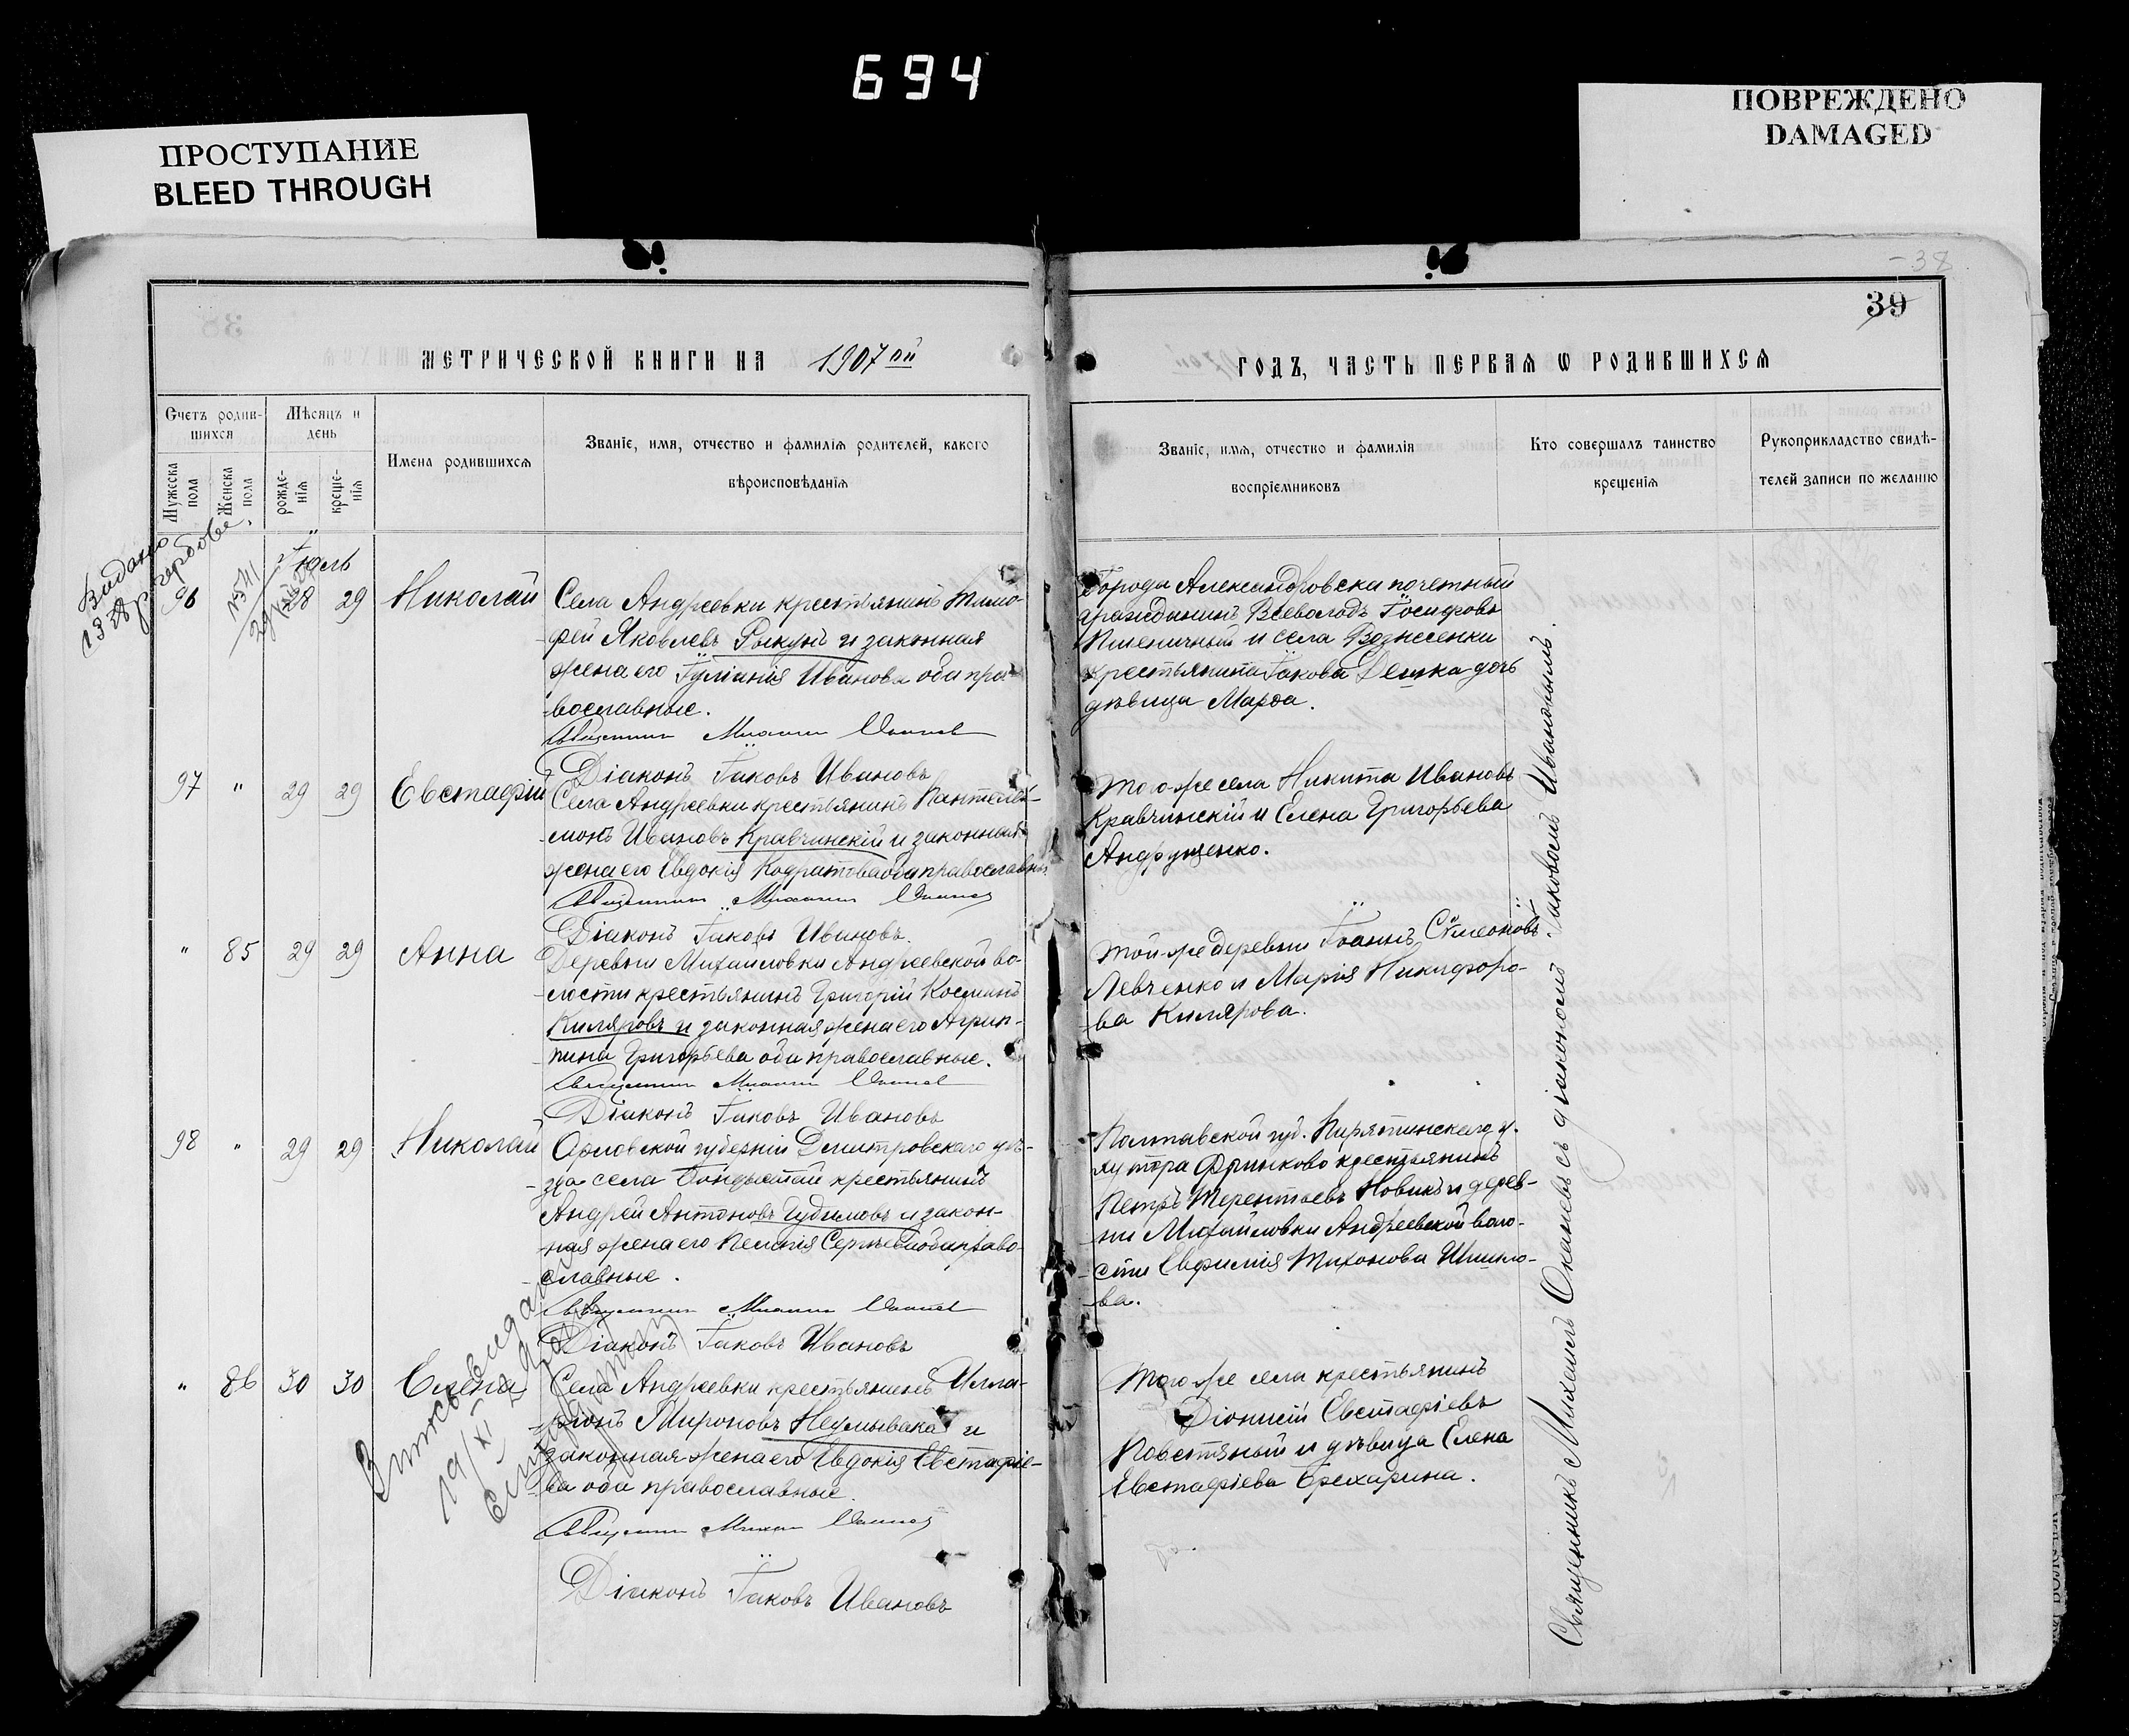 694
ПРОСТУПАНИЕ
BLEED THROUGH
ПОВРЕЖДЕНО
DAMAGED
38
39
МЕТРИЧЕСКОЙ КНИГИ НА 1907 ой
ГОДЪ, ЧАСТЬ ПЕРВАЯ Ѡ РОДИВШИХСЯ
Счетъ родив-
шихся
Мужеска пола
Женска пола
Мѣсяцъ и
день
рожде-
нія
креще-
нія
Имена родившихся
Званіе, имя, отчество и фамилія родителей, какого
вѣроисповѣданія
Званіе, имя, отчество и фамилія
воспріемниковъ
Кто совершалъ таинство
крещенія
Рукоприкладство свидѣ-
телей записи по желанію
Іюль
96 28 29 Николай
Села Андреевки крестьянинъ Тимо-
фей Яковлевъ Рыкунъ и законная
жена его Іуліанія Иванова оба пра-
вославные.
Священникъ Михаилъ
Діаконъ Іаковъ Ивановъ
Города Александровска почетный
гражданинъ Всеволодъ Іосифовъ
Пшеничный и села Вознесенки
крестьянина Іакова Дешка дочь
дѣвица Марѳа.
97 " 29 29 Евстафій
Села Андреевки крестьянинъ Пантелей-
монъ Ивановъ Кравчинскій и законная
жена его Евдокія Кодратова оба православн.
Священникъ Михаилъ
Діаконъ Іаковъ Ивановъ.
Того-же села Никита Ивановъ
Кравчинскій и Елена Григорьева
Андрущенко.
" 85 29 29 Анна
Деревни Михайловки Андреевской во-
лости крестьянинъ Григорій Косминъ
Киляровъ и законная жена его Агрип-
пина Григорьева оба православные.
Священникъ Михаилъ
Діаконъ Іаковъ Ивановъ
Той-же деревни Іоаннъ Симеоновъ
Левченко и Марія Никифоро-
ва Килярова.
98 " 29 29 Николай
Орловской губерніи Дмитровскаго уѣ-
зда села крестьянинъ
Андрей Антоновъ Гудимовъ и закон-
ная жена его Пелагія Сергѣева оба право-
славные.
Священникъ Михаилъ
Діаконъ Іаковъ Ивановъ
Полтавской губ. Пирятинскаго у.
хутора крестьянинъ
Петръ Терентьевъ Новикъ и дерев-
ни Михайловки Андреевской воло-
сти Евфимія Тихонова Шишло-
ва.
" 86 30 30 Елена
Села Андреевки крестьянинъ Илла-
ріонъ Мироновъ Неумывака и
законная жена его Евдокія Евстафіе-
ва оба православные.
Священникъ Михаилъ
Діаконъ Іаковъ Ивановъ
Того-же села крестьянинъ
Діонисій Евстафіевъ
Повстяный и дѣвица Елена
Евстафіева Брехарина.
Священникъ Михаилъ съ діакономъ Іаковомъ Ивановымъ.